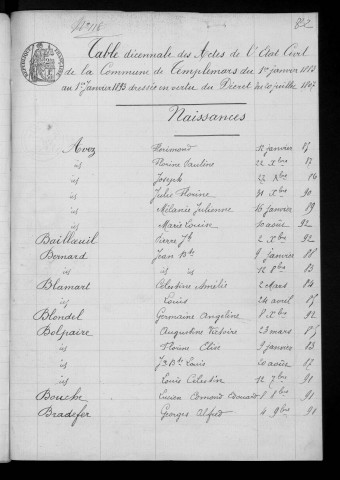 82
Table décennale des Actes de l'Etat Civil
de la Commune de Templemars du 1er janvier 1883
au 1er Janvier 1893 dressée en vertu du Décret du 20 juillet 1807
Naissances
Avez Florimond 12 janvier 87
id Florine Pauline 22 Xbre 87
id Joseph 27 Nbre 86
id Jules Florine 31 Xbre 90
id Mélanie Julienne 16 janvier 89
id Marie Louise 10 août 92
Bailleuil Pierre Jh 2 Xbre 92
Bernard Jean Bte 9 janvier 88
id id 12 8bre 83
Blamart Célestine Amélie 2 Mars 84
id Louis 24 avril 85
Blondel Germaine Angéline 8 Xbre 92
Bolpaire Augustine Victoire 23 mars 85
id Florine Elise 9 janvier 83
id Jn Bte Louis 20 août 87
id Louis Célestin 12 7bre 91
Bouche Lucien Edmond Edouard 8 8bre 91
Bradefer Georges Alfred 4 9bre 91